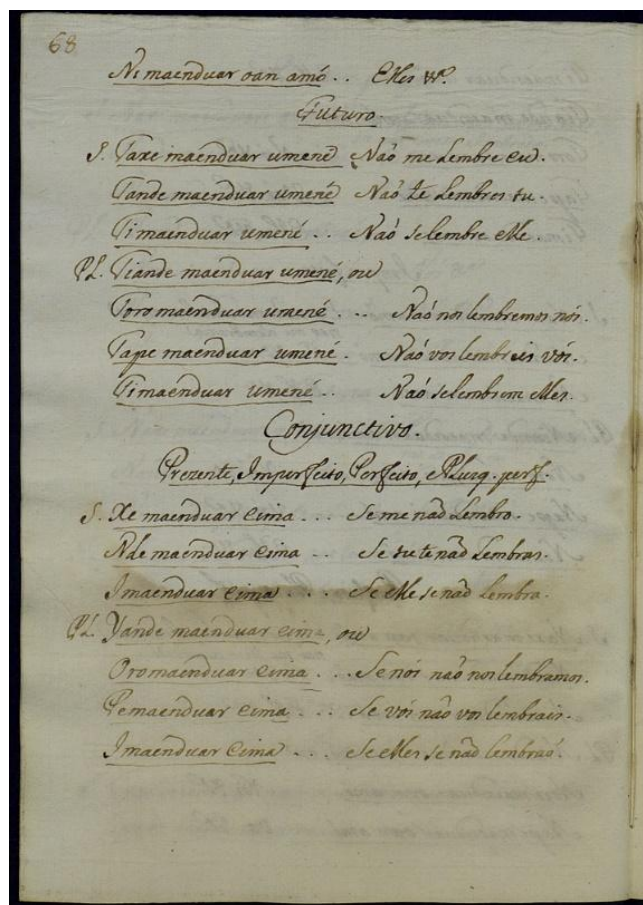 68
Nimaenduar oan amó . . Elles &c.
Futuro.
S. Taxe maenduar umené Naó me Lembre eu.
Tande maenduar umené Naó te Lembres tu.
Timaenduar umené . . Naó selembre elle.
Pl. Tiande maenduar umené, ou
Toro maenduar umené . . . Naó nos lembremos nós.
Tape maenduar umené . Naó vos lembreis vós.
Timaenduar umené . . Naó selembrem elles.
Conjunctivo.
Prezente, Imperfeito, Perfeito, e Plusq. perf.
S. Xe maenduar eima . . . Se me naõ Lembro.
Nde maenduar eima . . Se tu te naõ Lembras.
Imaenduar eima . . . . Se elle se naõ Lembra.
Pl. Yande maenduar eima, ou
Oromaenduar eima . . . Se nós naõ nos lembramos.
Pemaenduar eima . . . Se vós naõ vos lembrais.
Imaenduar eima . . . Se elles se naõ lembraó.